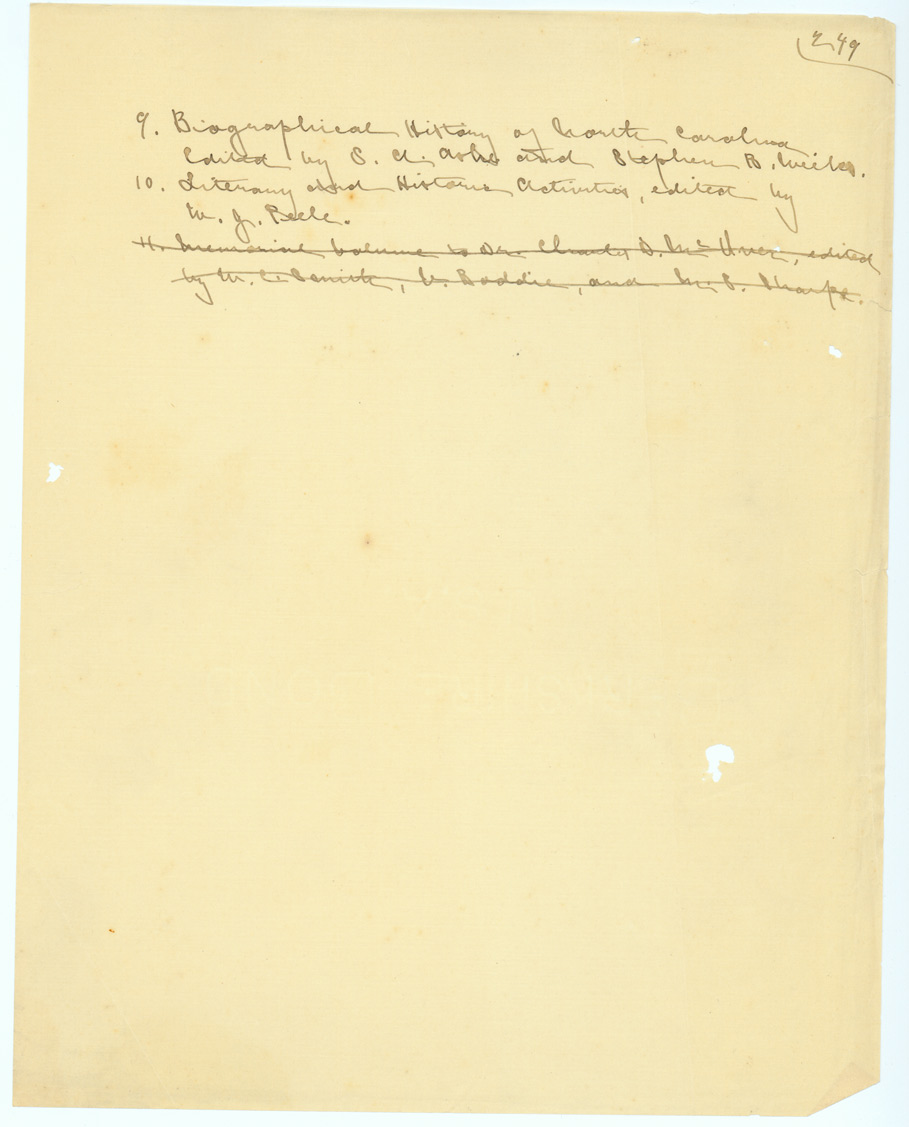 249
9. Biographical History of North Carolina
Edited by S. A. Ashe and Stephen B. Weeks.
10. Literary and Historic Activities, edited by
W. J. Peele.
11. Memorial Volume to Dr. Charles D. McIver, edited
by W. C. Smith, V. Boddie, and M. S. Sharpe.